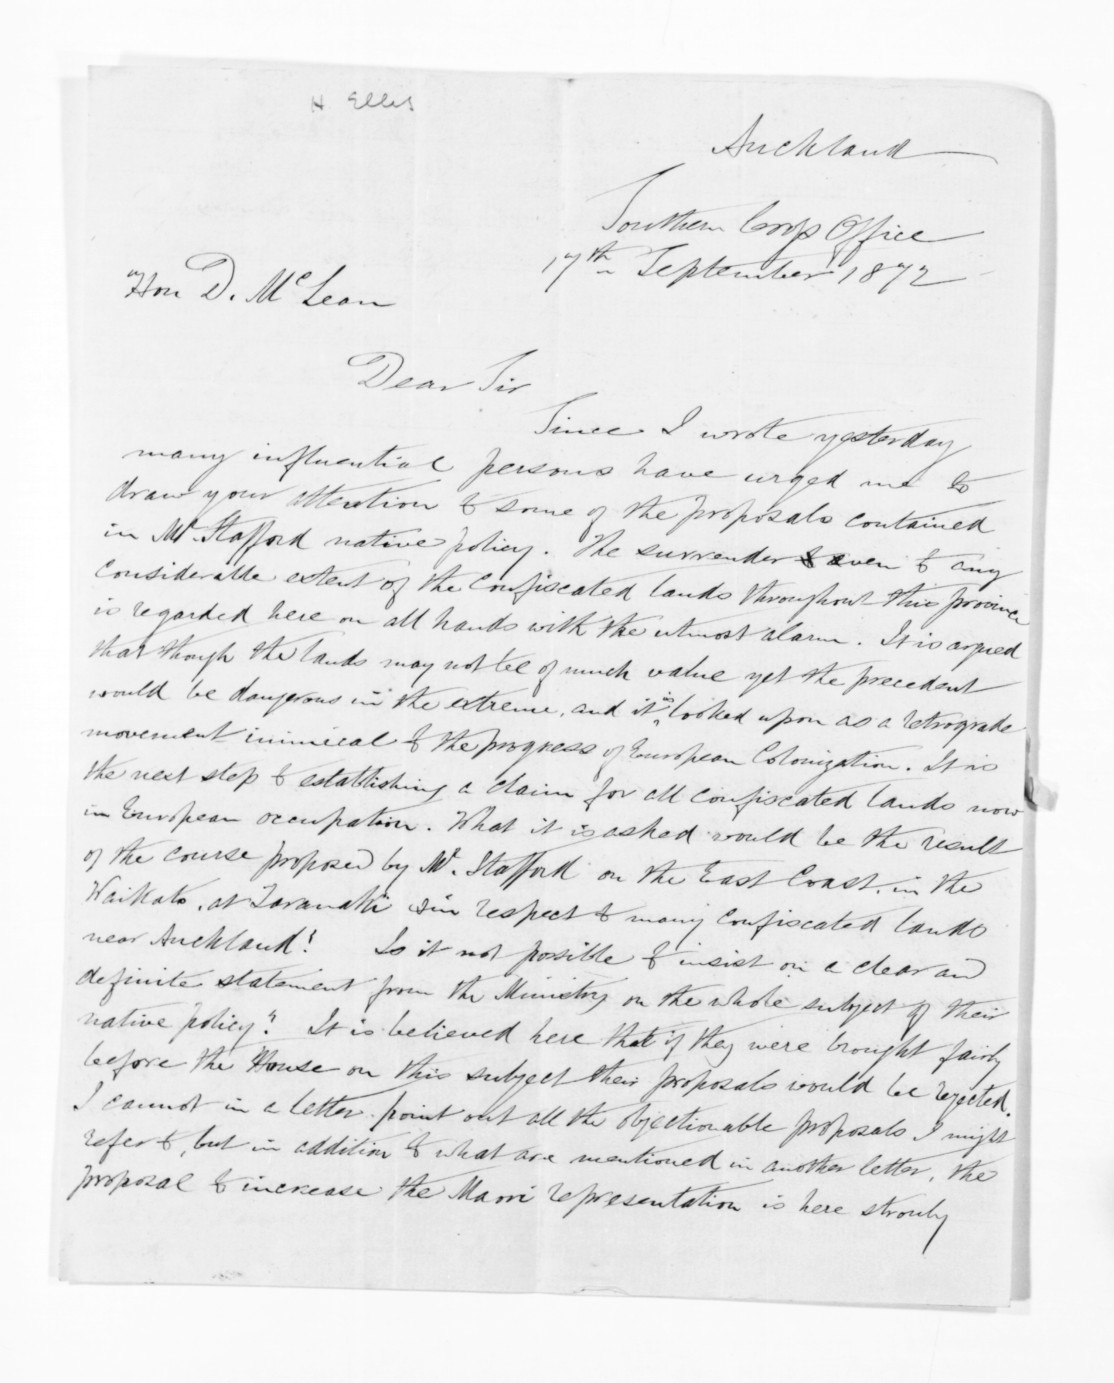 H Ellis
Auckland
Southern Cross Office
17th September 1872
Hon D. McLean
Dear Sir
Since I wrote yesterday
many influential persons have urged me to
draw your attention to some of the proposals contained
in Mr. Stafford native policy. The surrender even to any
considerable extent of the Confiscated lands throughout this province
is regarded here on all hands with the utmost alarm. It is argued
that though the lands may not be of much value yet the precedent
would be dangerous in the extreme, and it is looked upon as a retrograde
movement inimical to the progress of European Colonization. It is
the next step to establishing a claim for all confiscated lands now
in European occupation. What it is asked would be the result
of the course proposed by Mr. Stafford on the East Coast, in the
Waikato, at Taranaki & in respect to many Confiscated lands
near Auckland? Is it not possible to insist on a clear and
definite statement from the Ministry on the whole subject of their
native policy? It is believed here that if they were brought fairly
before the House on this subject their proposals would be rejected.
I cannot in a letter point out all the objectionable proposals I might
refer to, but in addition to what are mentioned in another letter, the
proposal to increase the Maori representation is here strongly